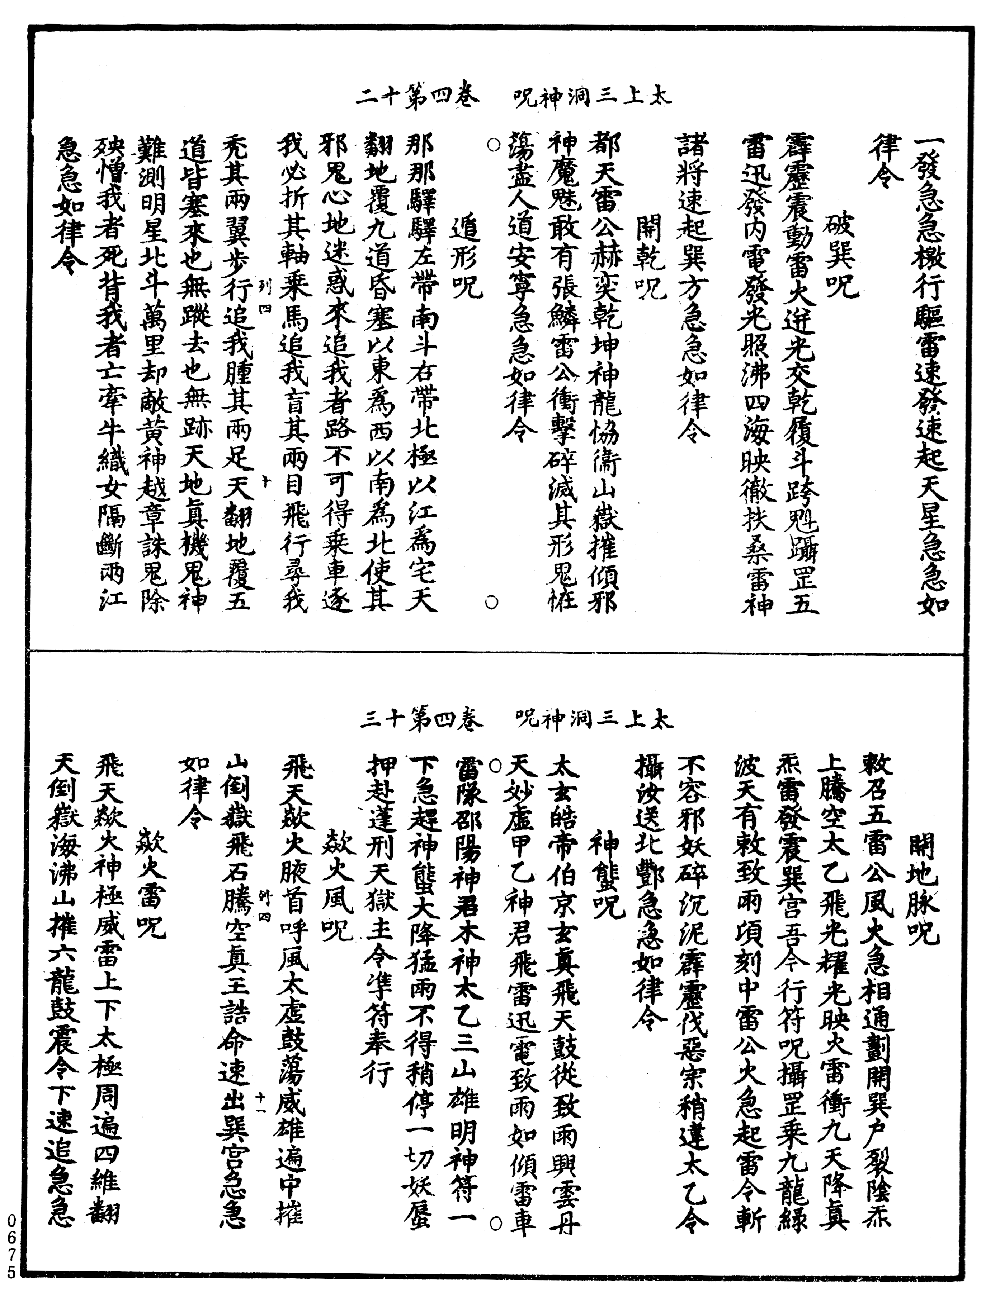 太上三洞神呪　卷四第十二
一發急急檄行驅雷速發速起天星急急如
律令
破巽呪
霹靂震動雷火迸光交乾履斗跨魁躡罡五
雷迅發內電發光照沸四海映徹扶桑雷神
諸將速起巽方急急如律令
開乾呪
都天雷公赫奕乾坤神龍恊衞山嶽摧傾邪
神魔魅敢有張鱗雷公衝擊碎滅其形鬼恠
蕩盡人道安寧急急如律令
遁形呪
那那驛驛左帶南斗右帶北極以江爲宅天
翻地覆九道昏塞以東爲西以南爲北使其
邪鬼心地迷惑來追我者路不可得乘車逐
我必折其軸乘馬追我盲其兩目飛行尋我
禿其兩翼步行追我腫其兩足天翻地覆五
道皆塞來也無蹤去也無跡天地眞機鬼神
難測明星北斗萬里却敵黃神越章誅鬼除
殃憎我者死背我者亡牽牛織女隔斷兩江
急急如律令
太上三洞神呪　卷四第十三
開地脉呪
敕召五雷公風火急相通劃開巽戶裂陰炁
上騰空太乙飛光耀光映火雷衝九天降眞
炁雷發震巽宮吾今行符呪攝罡乘九龍綠
波天有敕致雨頃刻中雷公火急起雷令斬
不容邪妖碎沉泥霹靂伐惡宗稍違太乙令
攝汝送北酆急急如律令
神䗻呪
太玄皓帝伯京玄眞飛天鼓從致雨興雲丹
天妙虛甲乙神君飛雷迅電致雨如傾雷車
雷隊邵陽神君木神太乙三山雄明神符一
下急趕神䗻大降猛雨不得稍停一切妖蜃
押赴蓬刑天獄主令準符奉行
歘火風呪
飛天歘火腋首呼風太虛鼓蕩威雄遍中摧
山倒嶽飛石騰空眞王誥命速出巽宮急急
如律令
歘火雷呪
飛天歘火神極威雷上下太極周遍四維翻
天倒嶽海沸山摧六龍鼓震令下速追急急
0675